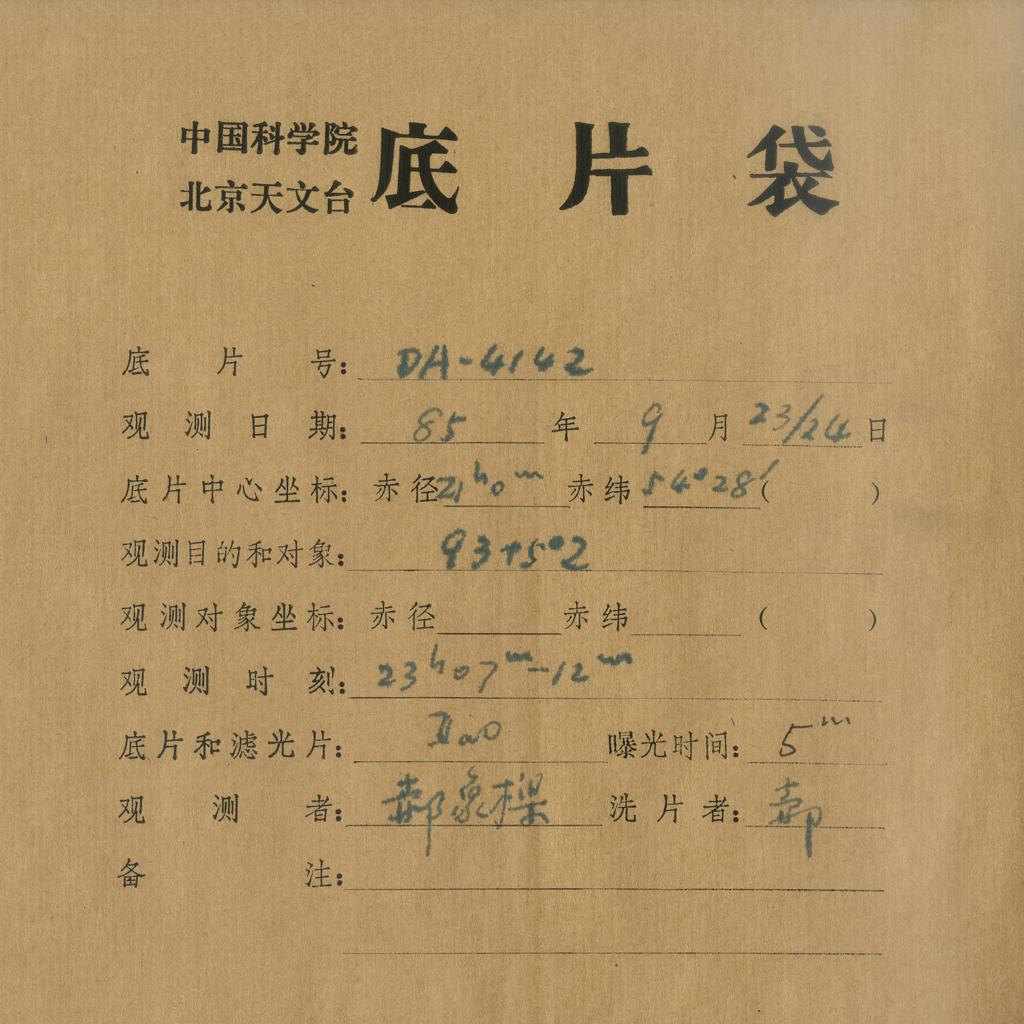 中国科学院
北京天文台
底片袋
底片号: DA-4142
观测日期: 85 年 9 月 23/24 日
底片中心坐标: 赤径 21ʰ0ᵐ 赤纬 54°28′ ( )
观测目的和对象: 93+5°2
观测对象坐标: 赤径 赤纬 ( )
观测时刻: 23ʰ07ᵐ-12ᵐ
底片和滤光片: IIaO 曝光时间: 5ᵐ
观测者: 郝象樑 洗片者: 郝
备注: